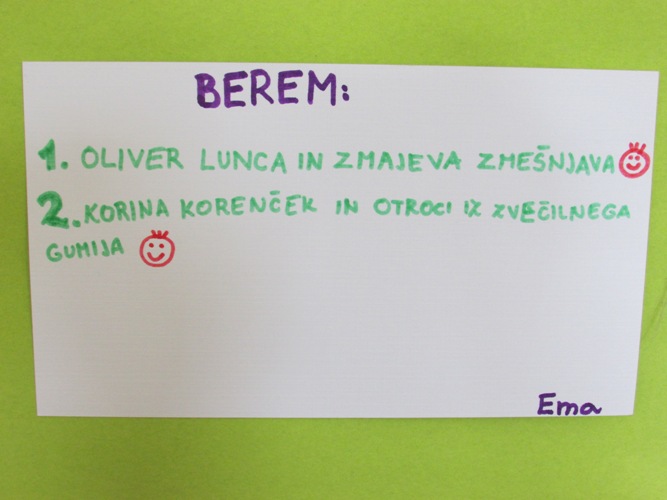 BEREM:
1. OLIVER LUNCA IN ZMAJEVA ZMEŠNJAVA
2. KORINA KORENČEK IN OTROCI IZ ZVEČILNEGA
GUMIJA
Ema